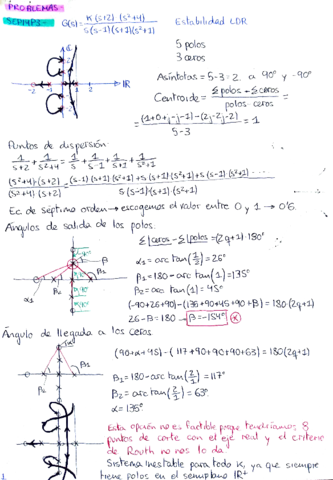 PROBLEMAS
SEP14P3- G(s) = K(s+2)(s²+4) / s(s-1)(s+1)(s²+1) Estabilidad LDR
5 polos
3 ceros
C
IR
-2 -1 1
Asíntotas = 5-3 = 2. a 90º y -90º
Centroide = Σpolos - Σceros / polos - ceros =
= (1+0+j-j-1)-(2j-2j-2) / 5-3 = 1
Puntos de dispersión:
1/s+2 + 1/s²+4 = 1/s + 1/s-1 + 1/s+1 + 1/s²+1
(s²+4)(s+2) / (s²+4)(s+2) = (s-1)(s+1)(s²+1)+s(s+1)(s²+1)+s(s-1)(s²+1)... / s(s-1)(s+1)(s²+1)
Ec. de séptimo orden → escogemos el valor entre 0 y 1 → 0'6.
Ángulos de salida de los polos.
Σ∫ceros - Σ∫polos = (2q+1)·180º
α1 = arctan(1/2) = 26º
β1 = 180 - arctan(1) = 135º
β2 = arctan(1) = 45º
(-90+26+90)-(135+90+45+90+β) = 180(2q+1)
26-β = 180 → β = -154º K
α1
β2
β1
β
Ángulo de llegada a los ceros
(90+α+45)-(117+90+90+90+63) = 180(2q+1)
β1 = 180 - arctan(2/1) = 117º
β2 = arctan(2/1) = 63º
α = 135º
β2
β1
Esta opción no es factible porque tendríamos 8
puntos de corte con el eje real y el criterio
de Routh no nos lo da.
Sistema inestable para todo K, ya que siempre
tiene polos en el semiplano IR+
1